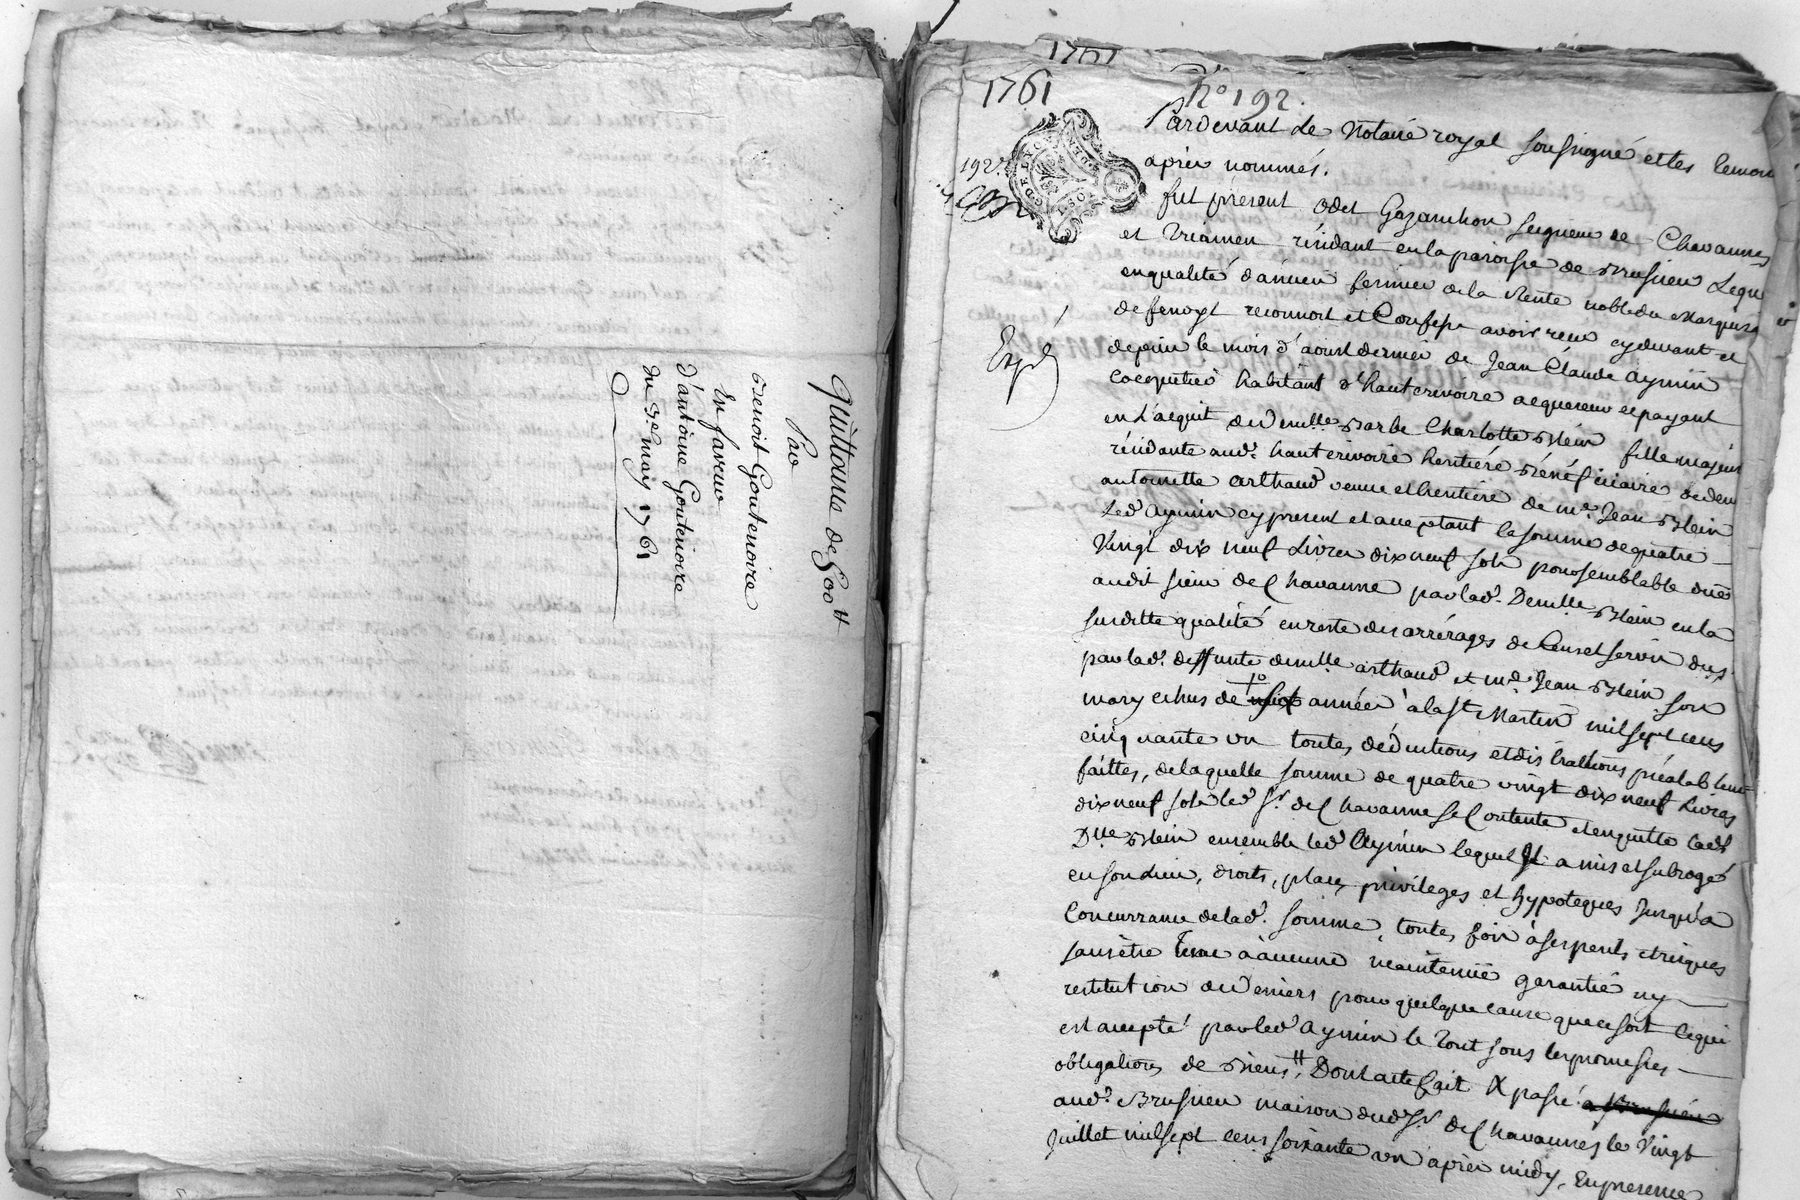 quittance de 600 ₶
Par
Benoit Goutenoire
En faveur
d'antoine Goutenoire
du 3e may 1761
1761
1761
N° 192.
192.
Exp.d
Pardevant Le Notaire royal soussigné et les temoins
après nommés.
fut présent Odet Gazanchon seigneur de Chavannes
et résidant en la paroisse de Brusieu Lequel
en qualité d'ancien fermier de la Rente noble du Marquisat
de fenoyl reconnoit et Confesse avoir reçu cydevant et
depuis le mois d'aoust dernier de Jean Claude aymin
habitant d'hauterivoire acquereur et payant
en L'acquit de demlle Barbe Charlotte Blein fille majeure
résidante aud. hauterivoire heritiére Bénéficiaire de dem
antoinette arthaud veuve et heritiére de mr. Jean Blein
Led aymin cy present et acceptant la somme de quatre
Vingt dix neuf Livres dix neuf sols pour semblable due
audit sieur de Chavanne par lad. Demlle Blein en la
susditte qualité en reste des arrérages de Cens et servis dus
par lad. deffunte demlle arthaud et md. Jean Blein son
mary echus de années à la St Martin mil sept cens
cinquante un toutes déductions et distractions préalablemt
faittes, de laquelle somme de quatre vingt dix neuf Livres
dix neuf sols led Sr. de Chavanne se Contente et en quitte lad
Dlle Blein ensemble led Aymin lequel Il a mis et subrogé
en son Lieu, droits, place, privileges et hypoteques Jusqu'a
Concurrance de lad. somme, toutes fois à ses perils et risques
sans être tenu à aucune maintenüe garantie ny
restitution de deniers pour quelque cause que ce soit ce qui
est accepté par led aymin le tout sous les promesses
obligations de Biens, Dont acte fait & passé a Brusieu
aud. Brusieu maison dud Sr de Chavannes le Vingt
Juillet mil sept cens soixante un après midy, En presence